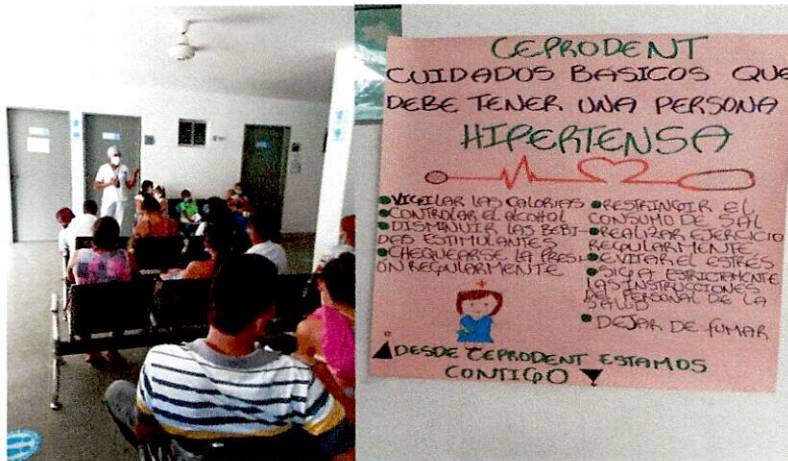 CEPRODENT
CUIDADOS BASICOS QUE
DEBE TENER UNA PERSONA
HIPERTENSA
•VIGILAR LAS CALORIAS
•CONTROLAR EL ALCOHOL
•DISMINUIR LAS BEBI-
DAS ESTIMULANTES
•CHEQUEARSE LA PRESI
ÓN REGULARMENTE
•RESTRINGIR EL
CONSUMO DE SAL
•REALIZAR EJERCICIO
REGULARMENTE
•EVITAR EL ESTRÉS
•SIGA ESTRICTAMENTE
LAS INSTRUCCIONES
DEL PERSONAL DE LA
SALUD
•DEJAR DE FUMAR
DESDE CEPRODENT ESTAMOS
CONTIGO